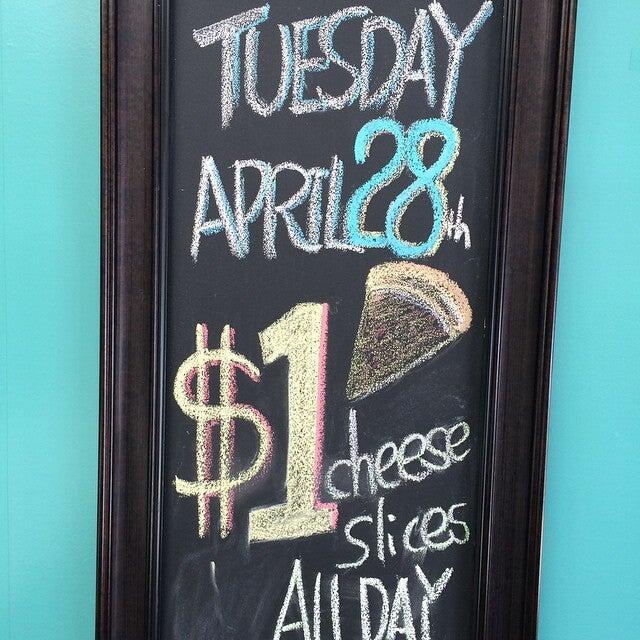 TUESDAY
APRIL 28th
$1 cheese
slices
All DAY